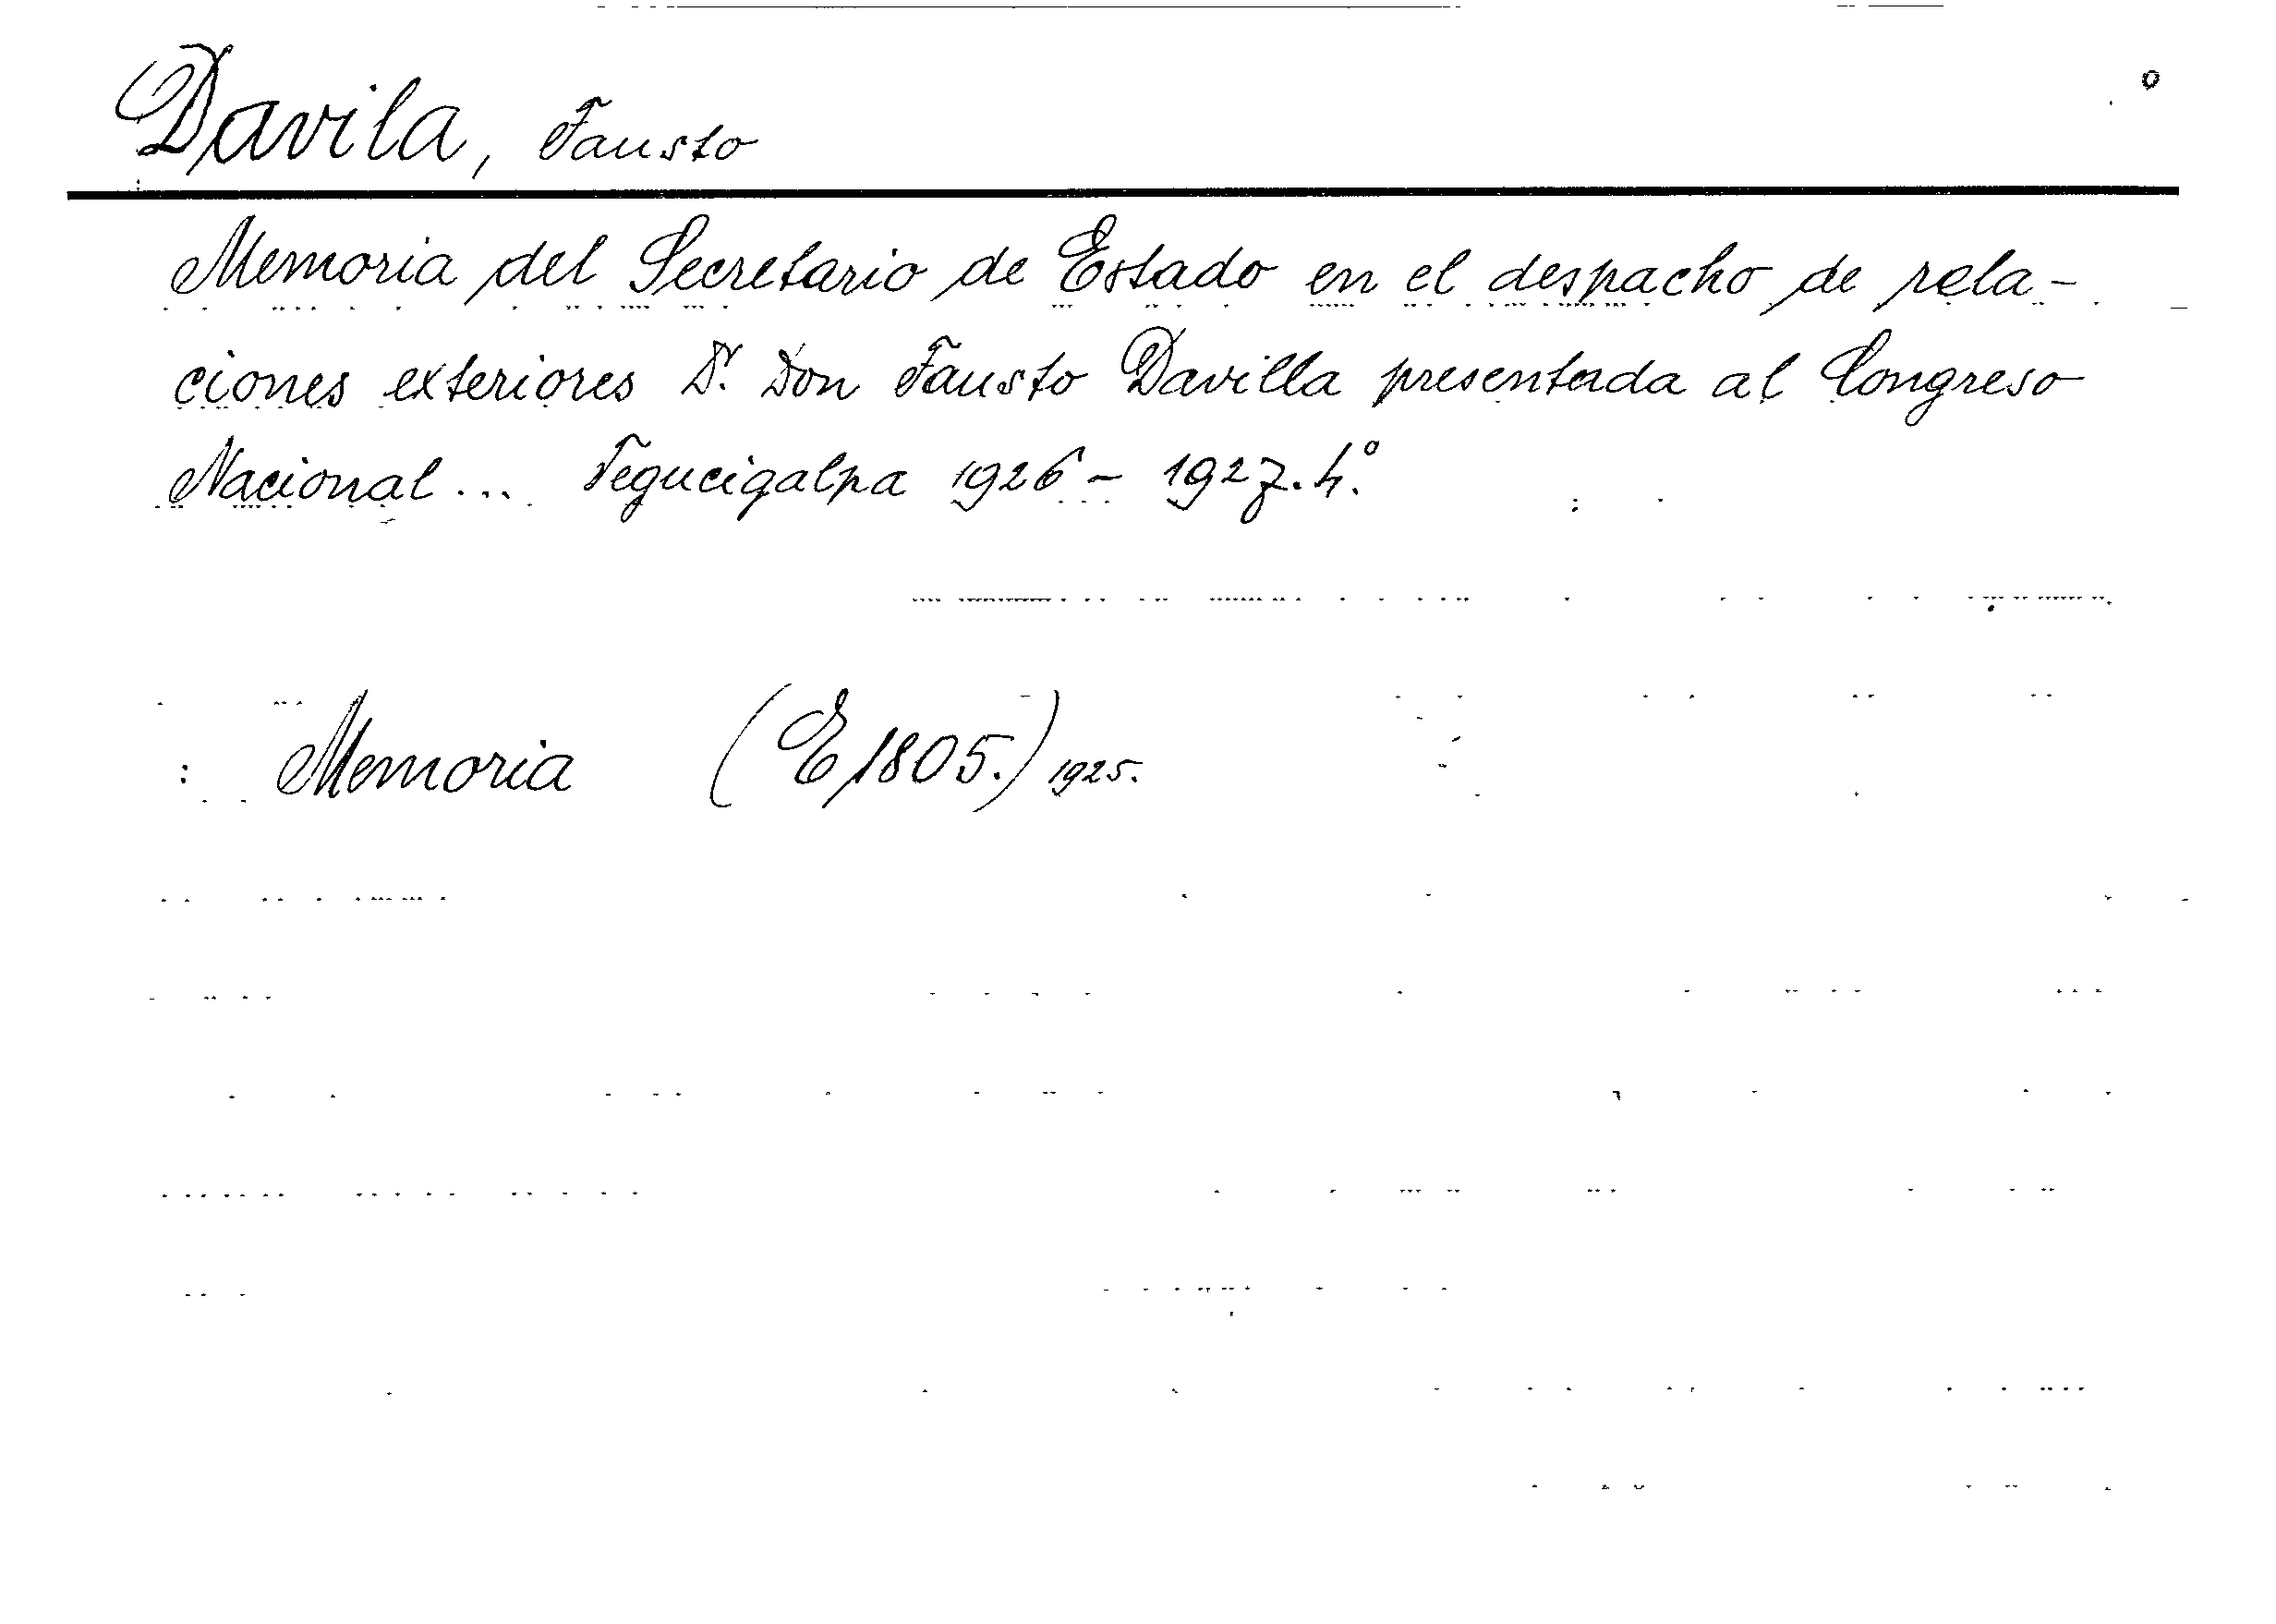 Davila, Fausto
Memoria del Secretario de Estado en el despacho de rela-
ciones exteriores Dr. Don Fausto Davilla presentada al Congreso
Nacional ... Tegucigalpa 1926 - 1927. 4.º
Memoria (E 1805.) 1925.